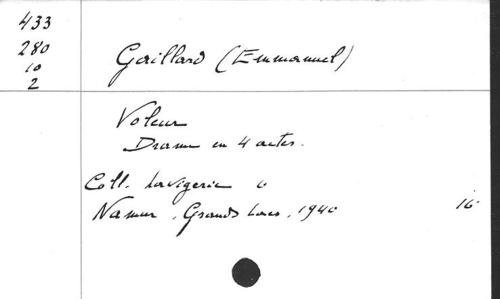 433
280
10
2
Gaillard (Emmanuel)
Voleur
Drame en 4 actes.
Coll. Lavigerie 6
Namur, Grands Lacs, 1940 16